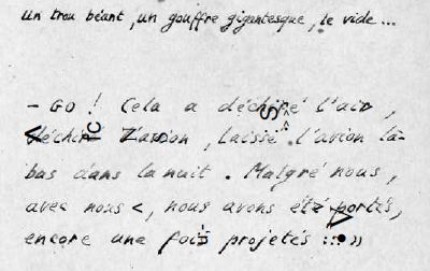 Un trou béant, un gouffre gigantesque, le vide...
- GO ! Cela a déchiré l'air,
déchiré l'avion, laissé l'avion là-
bas dans la nuit. Malgré nous,
avec nous <, nous avons été portés,
encore une fois projetés ...»